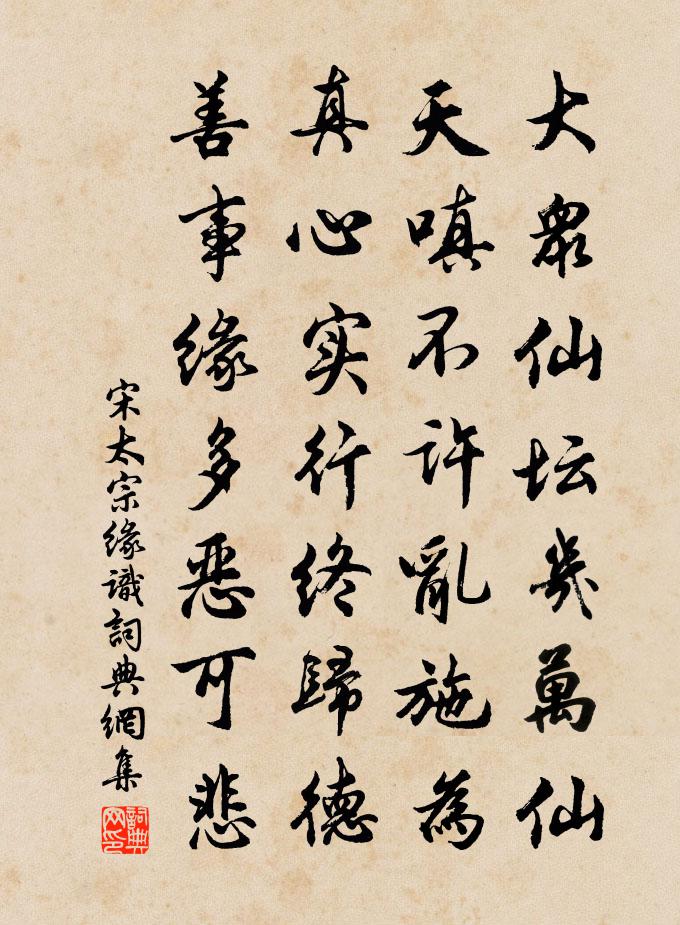 大衆仙坛幾萬仙
天嗔不许亂施為
真心实行终歸德
善事缘多恶可悲
宋太宗缘識詞典網集
詞典网印